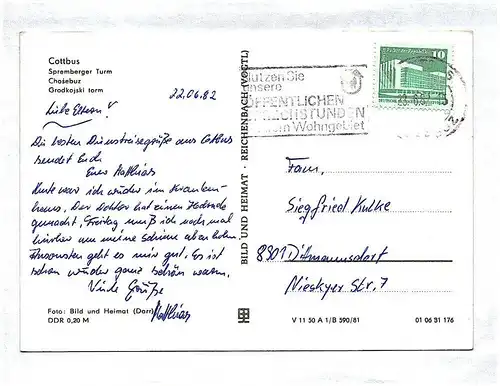 Cottbus
Spremberger Turm
Chośebuz
Grodkojski torm
22.06.82
Liebe Eltern!
Die besten Dienstreisegrüße aus Cottbus
sendet Euch
Euer Matthias
Heute war ich wieder im Kranken-
haus. Der Doktor hat einen
gemacht, Freitag muß ich noch mal
hin um meine abenholen.
Ansonsten geht es mir gut. Es ist
schon wieder ganz schön warm.
Viele Grüße
Matthias
Foto: Bild und Heimat (Darr)
DDR 0,20 M
BILD UND HEIMAT · REICHENBACH (VOGTL)
V 11 50 A 1/B 590/81
01 06 31 176
Nutzen Sie
unsere
ÖFFENTLICHEN
SPRECHSTUNDEN
im Wohngebiet
10
Fam.
Siegfried Kulke
8901 Dittmannsdorf
Nieskyer Str. 7